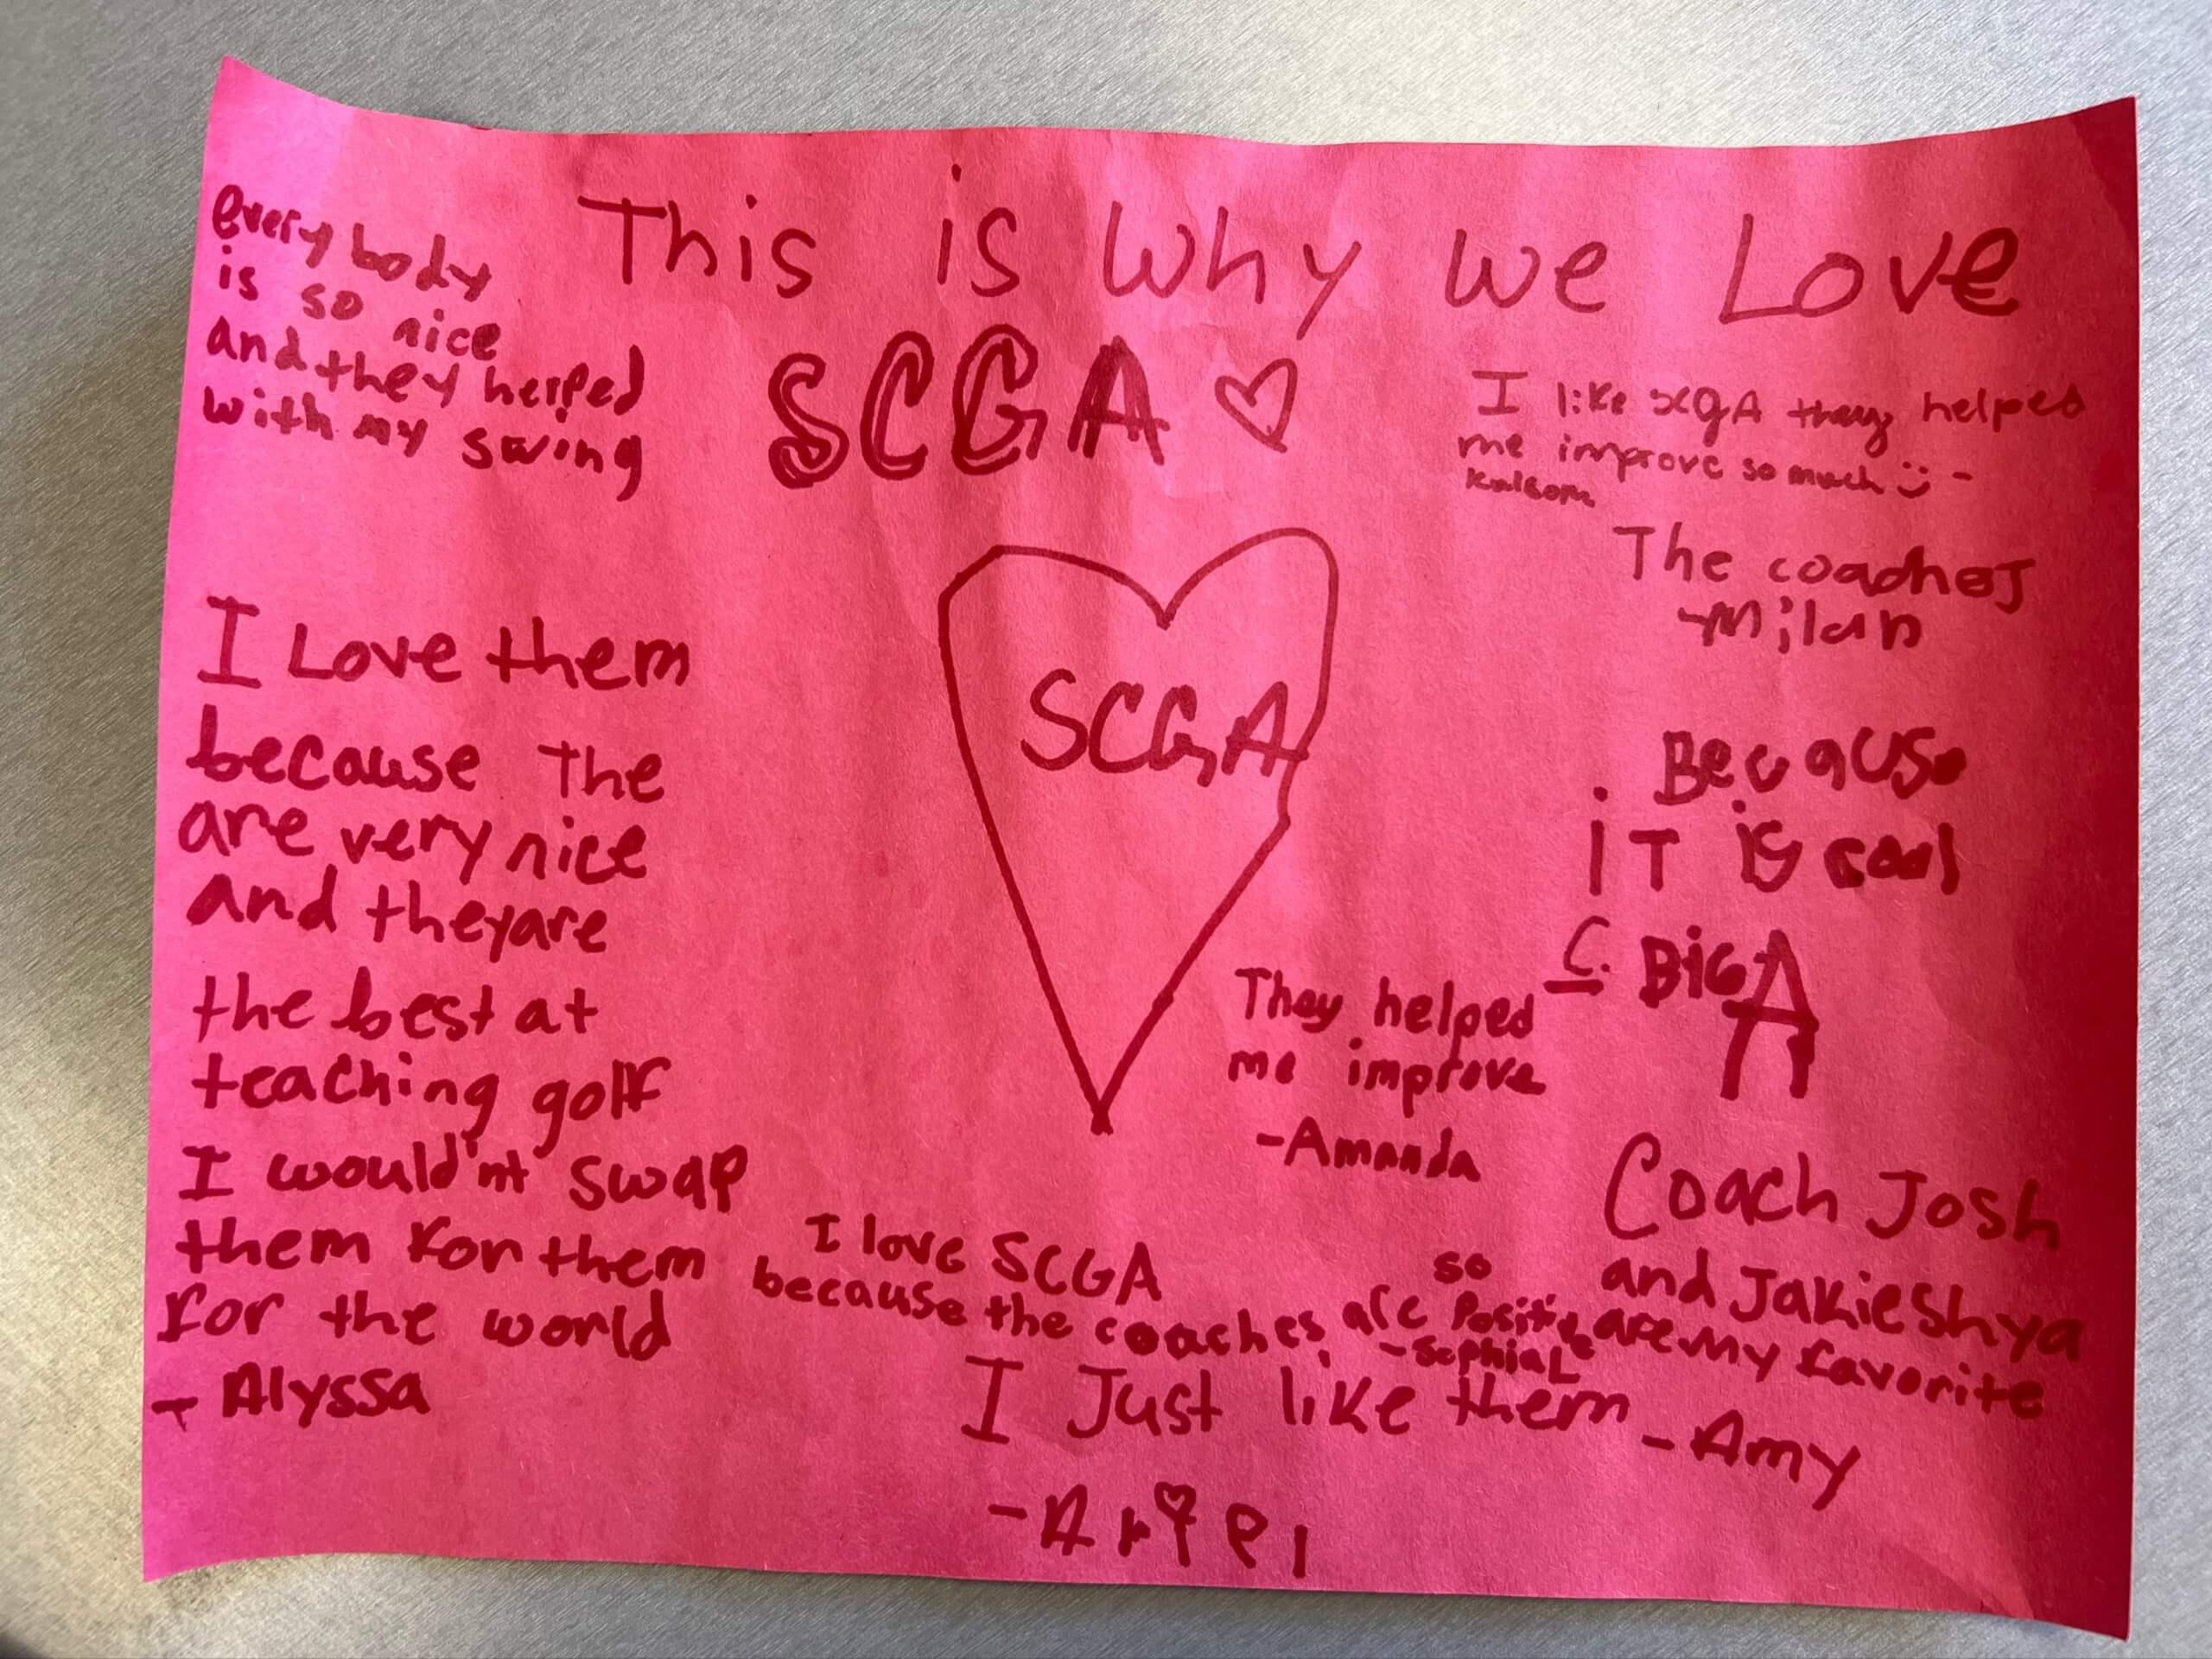 This is why we Love
SCGA
everybody
is so nice
and they helped
with my swing
I like SCGA they helped
me improve so much -
The coaches
-Milan
I Love them
because the
are very nice
and theyare
the best at
teaching golf
I would'nt swap
them for them
for the world
- Alyssa
SCGA
Because
iT is cool
BiG A
They helped
me improve
-Amanda
I love SCGA
because the coaches are so Positive
-Sophia L
Coach Josh
and Jakieshya
are my favorite
-Amy
I Just like them